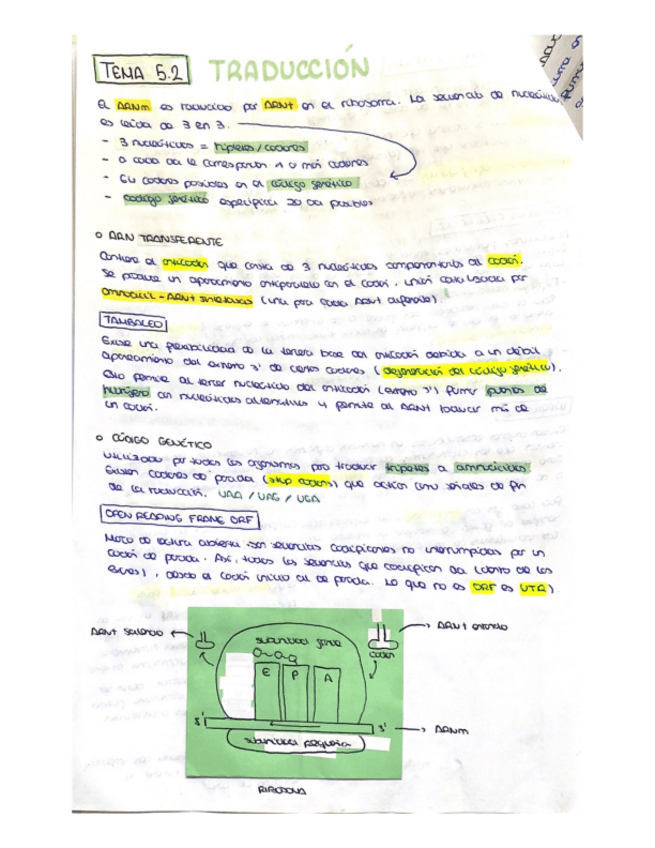 TEMA 5.2 TRADUCCIÓN
El ARNm es traducido por ARNt en el ribosoma. La secuencia de nucleótidos
es leída de 3 en 3.
- 3 nucleótidos = tripletes/codones
- a cada aa le corresponden 1 o más codones
- 64 codones posibles en el código genético
- código genético especifica 20 aa posibles
o ARN TRANSFERENTE
Contiene el anticodón que consta de 3 nucleótidos complementarios al codón.
Se produce un apareamiento antiparalelo con el codón, unión catalizada por
aminoacil-ARNt sintetasas (una para cada ARNt diferente).
TAMBALEO
Existe una flexibilidad de la tercera base del anticodón debido a un débil
apareamiento del extremo 3' de ciertos codones (degeneración del código genético).
Esto permite al tercer nucleótido del anticodón (extremo 3') formar puentes de
hidrógeno con nucleótidos alternativos y permite al ARNt traducir más de
un codón.
o CÓDIGO GENÉTICO
Utilizado por todos los organismos para traducir tripletes a aminoácidos.
Existen codones de parada (stop codons) que actúan como señales de fin
de la traducción. UAA / UAG / UGA
OPEN READING FRAME ORF
Marco de lectura abierta: son secuencias codificantes no interrumpidas por un
codón de parada. Así, todas las secuencias que codifican aa (dentro de los
exones), desde el codón inicio al de parada. Lo que no es ORF es UTR)
ARNt saliendo
ARNt entrando
subunidad grande
codón
E P A
5' 3'
ARNm
subunidad pequeña
RIBOSOMA